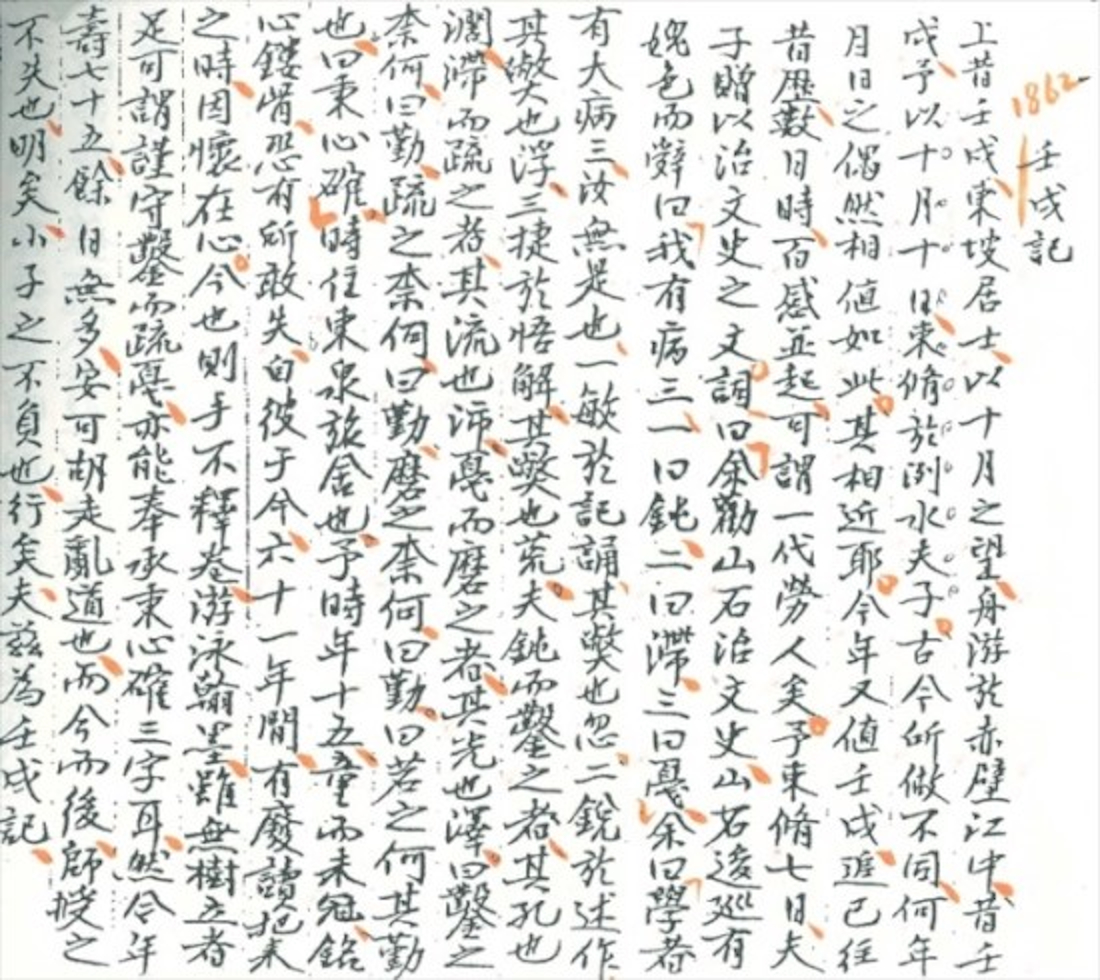 1862
壬戌記
上昔壬戌東坡居士以十月之望舟游於赤壁江中昔壬
戌予以十月十日東脩於洌水夫子古今所倣不同何年
月日之偶然相値如此其相近耶今年又值壬戌遡已往
昔歷數日時百感並起可謂一代勞人矣予東脩七日夫
子贈以治文史之文詞曰余勸山石治文史山石逡巡有
媿色而辭曰我有病三一曰鈍二曰滯三曰戞余曰學者
有大病三汝無是也一敏於記誦其弊也忽二銳於述作
其弊也浮三捷於悟解其弊也荒夫鈍而鑿之者其孔也
濶滯而疏之者其流也沛戞而磨之者其光也澤曰鑿之
柰何曰勤疏之柰何曰勤磨之柰何曰勤曰若之何其勤
也曰秉心確時住東泉旅舍也予時年十五童而未冠銘
心鏤骨恐有所敢失自彼于今六十一年間有廢讀把耒
之時因懷在心今也則手不釋卷游泳翰墨雖無樹立者
足可謂謹守鑿而疏戞亦能奉承秉心確三字耳然今年
壽七十五餘日無多安可胡走亂道也而今而後師授之
不失也明矣小子之不負也行矣夫茲為壬戌記